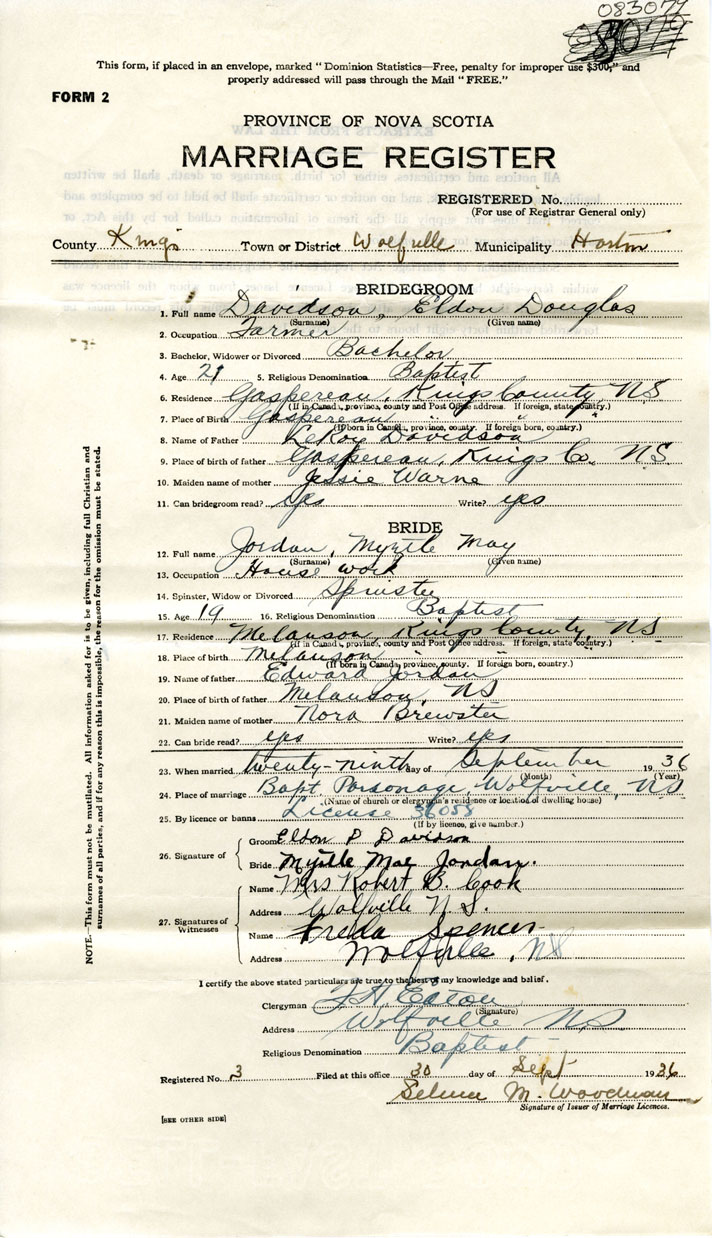 083079
This form, if placed in an envelope, marked "Dominion Statistics—Free, penalty for improper use $300," and
properly addressed will pass through the Mail "FREE."
FORM 2
PROVINCE OF NOVA SCOTIA
MARRIAGE REGISTER
REGISTERED No.
(For use of Registrar General only)
County Kings Town or District Wolfville Municipality Horton
BRIDEGROOM
1. Full name Davidson, Eldon Douglas
(Surname) (Given name)
2. Occupation Farmer
3. Bachelor, Widower or Divorced Bachelor
4. Age 21 5. Religious Denomination Baptist
6. Residence Gaspereau, Kings County, NS
(If in Canada, province, county and Post Office address. If foreign, state country.)
7. Place of Birth Gaspereau " "
(If born in Canada, province, county. If foreign born, country.)
8. Name of Father LeRoy Davidson
9. Place of birth of father Gaspereau, Kings Co. N.S.
10. Maiden name of mother Jessie Warne
11. Can bridegroom read? yes Write? yes
BRIDE
12. Full name Jordan, Myrtle May
(Surname) (Given name)
13. Occupation House work
14. Spinster, Widow or Divorced Spinster
15. Age 19 16. Religious Denomination Baptist
17. Residence Melanson, Kings County, NS
(If in Canada, province, county and Post Office address. If foreign, state country.)
18. Place of birth Melanson " "
(If born in Canada, province, county. If foreign born, country.)
19. Name of father Edward Jordan
20. Place of birth of father Melanson, NS
21. Maiden name of mother Nora Brewster
22. Can bride read? yes Write? yes
23. When married twenty-ninth day of September 1936
(Month) (Year)
24. Place of marriage Bapt. Parsonage, Wolfville, NS
(Name of church or clergyman's residence or location of dwelling house)
25. By licence or banns License 36055
(If by licence, give number.)
26. Signature of
Groom Eldon D Davidson
Bride Myrtle May Jordan.
27. Signatures of Witnesses
Name Mrs Robert B. Cook
Address Wolfville N.S.
Name Freda Spencer
Address Wolfville, NS
I certify the above stated particulars are true to the best of my knowledge and belief.
Clergyman F.H. Eaton
(Signature)
Address Wolfville NS
Religious Denomination Baptist
Registered No. 3 Filed at this office 30 day of Sept 1936
Selma M. Woodman
Signature of Issuer of Marriage Licences.
[SEE OTHER SIDE]
NOTE.—This form must not be mutilated. All information asked for is to be given, including full Christian and
surnames of all parties, and if for any reason this is impossible, the reason for the omission must be stated.